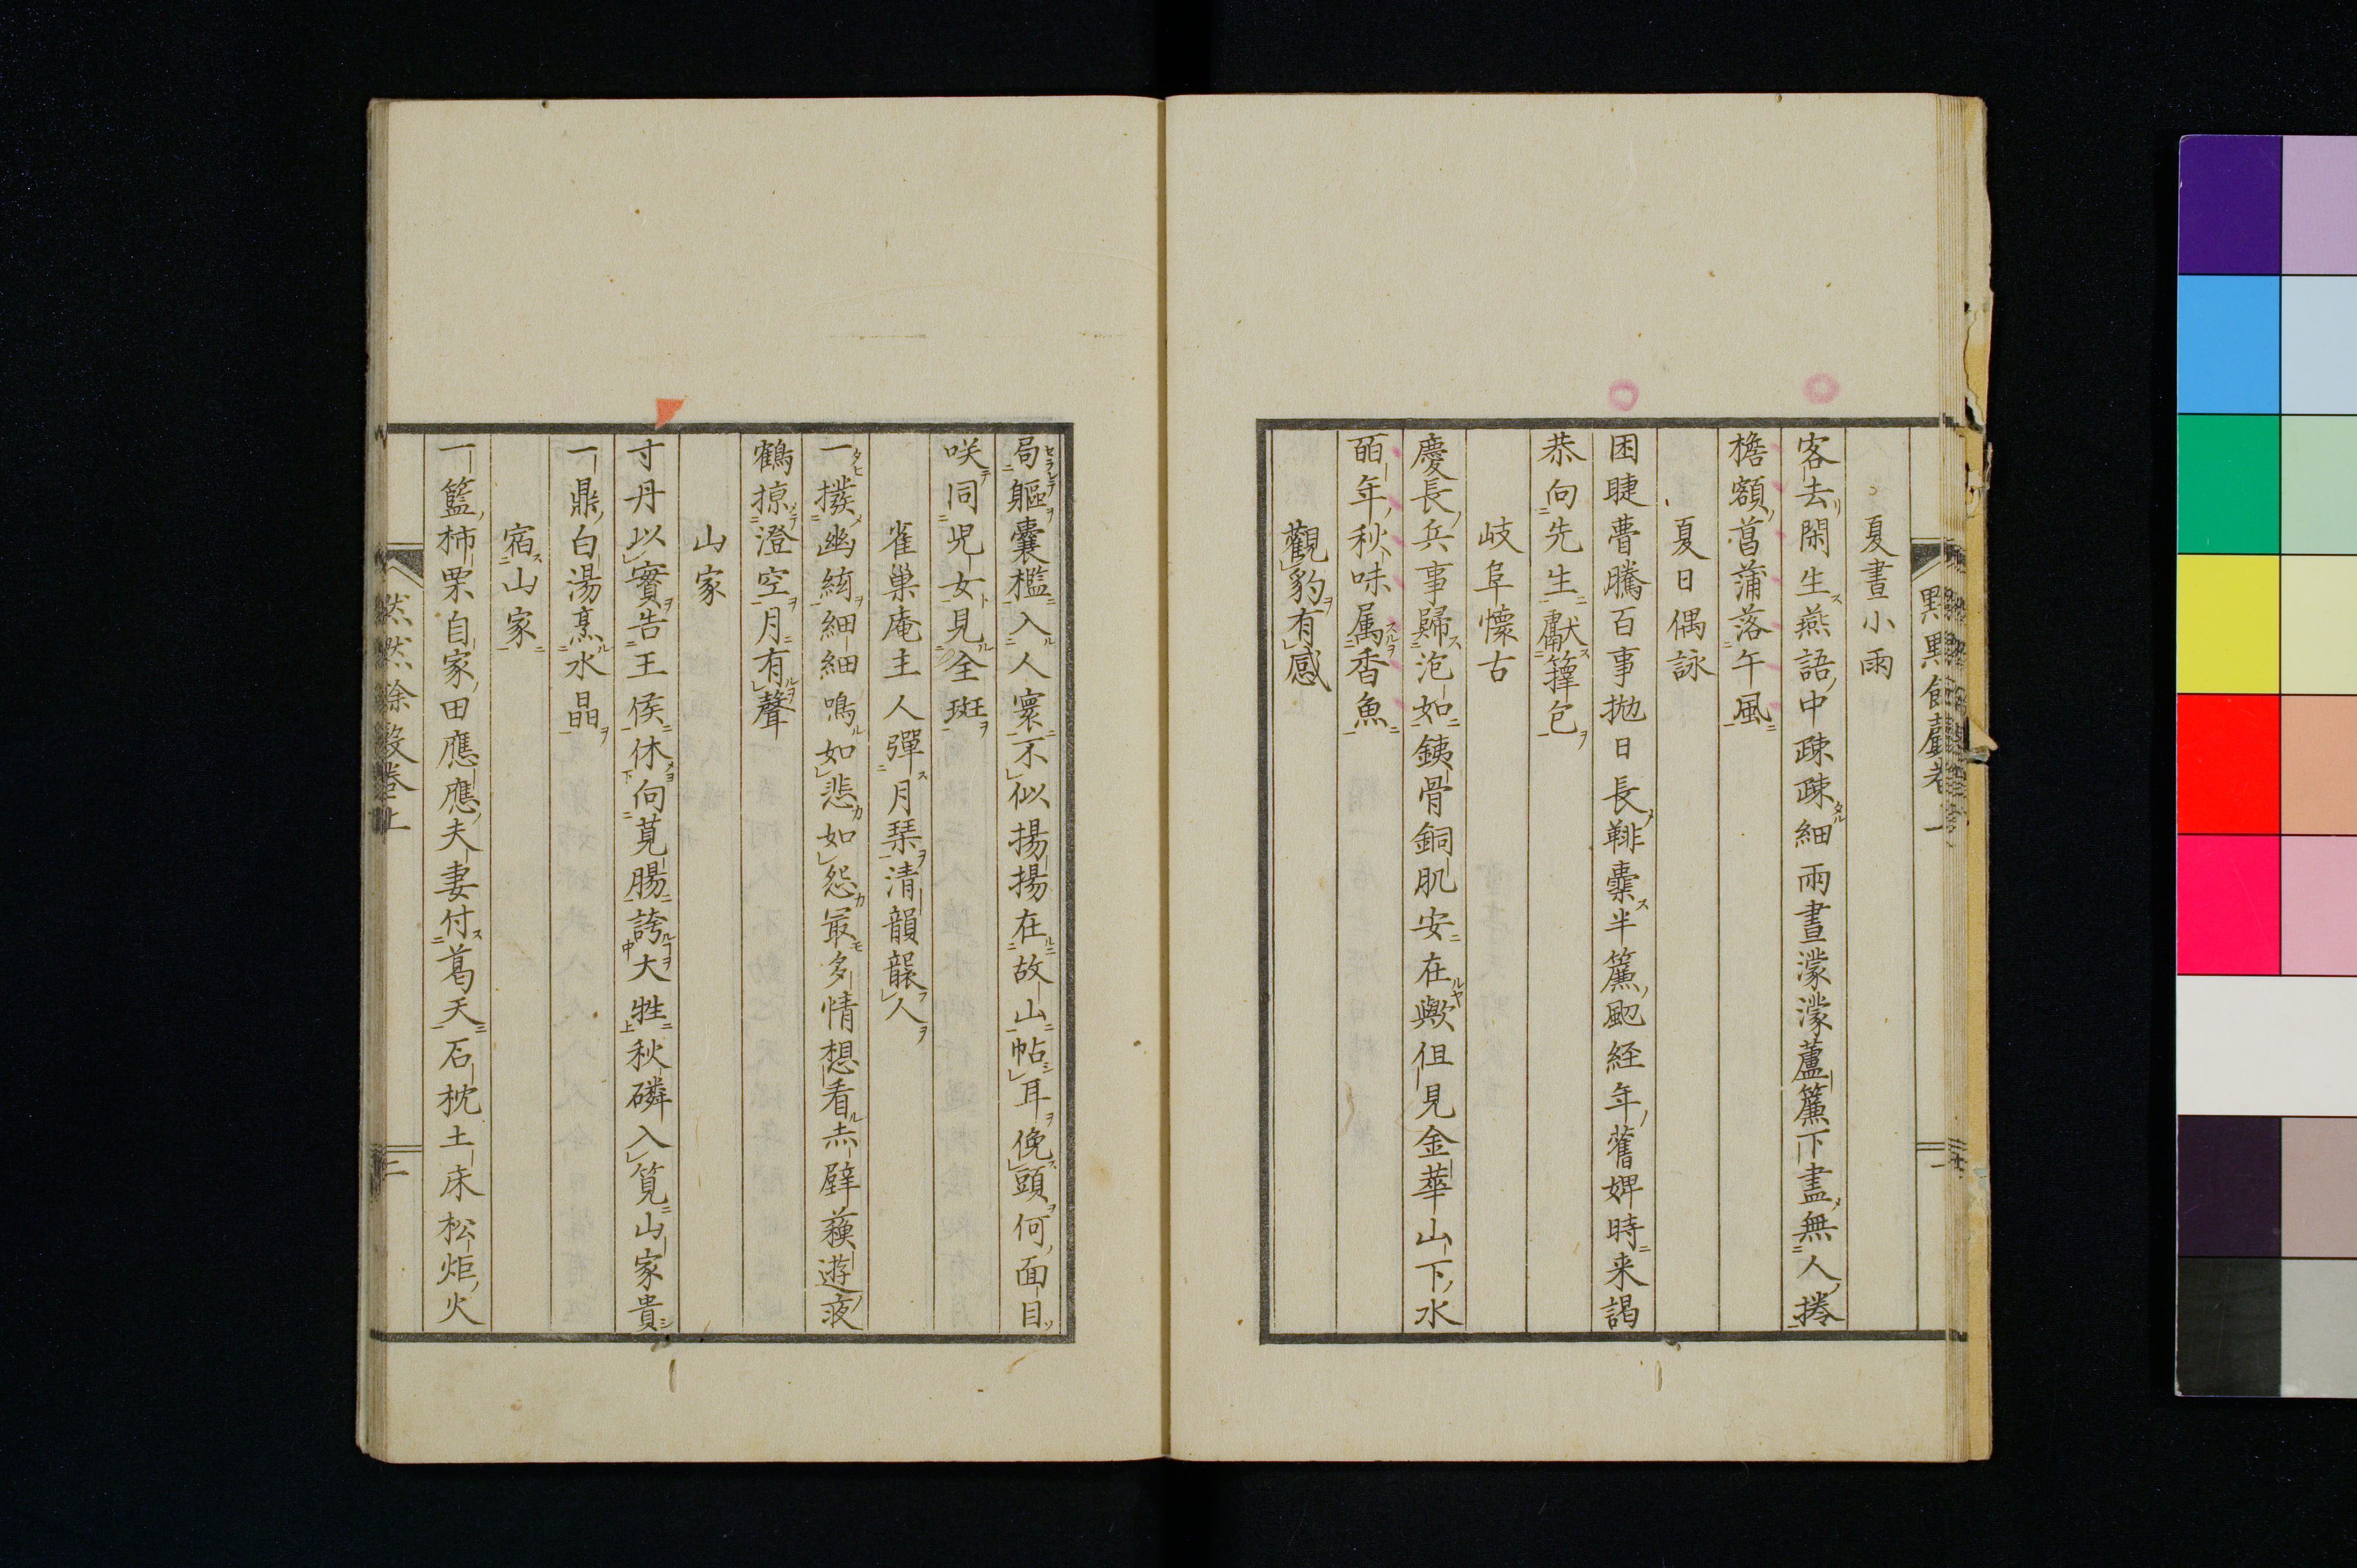 夏晝小雨
客去閑生燕語中疎疎細雨晝濛濛蘆簾下盡無人捲
檐額菖蒲落午風
夏日偶詠
困睫瞢騰百事拋日長鞾囊半簾颸経年舊婢時来謁
恭向先生獻籜包
岐阜懐古
慶長兵事歸泡如銕骨銅肌安在歟但見金華山下水
百年秋味属香魚
觀豹有感
局軀囊檻入人寰不似揚揚在故山帖耳俛頭何面目
咲同児女見全斑
雀巢庵主人彈月琴清韻襲人
一撥幽絃細細鳴如悲如怨最多情想看赤壁蘓遊夜
鶴掠澄空月有聲
山家
寸丹以實告王侯休向莧腸誇大牲秋磷入筧山家貴
一鼎白湯烹水晶
宿山家
一籃柿栗自家田應應夫妻付葛天石枕土床松炬火